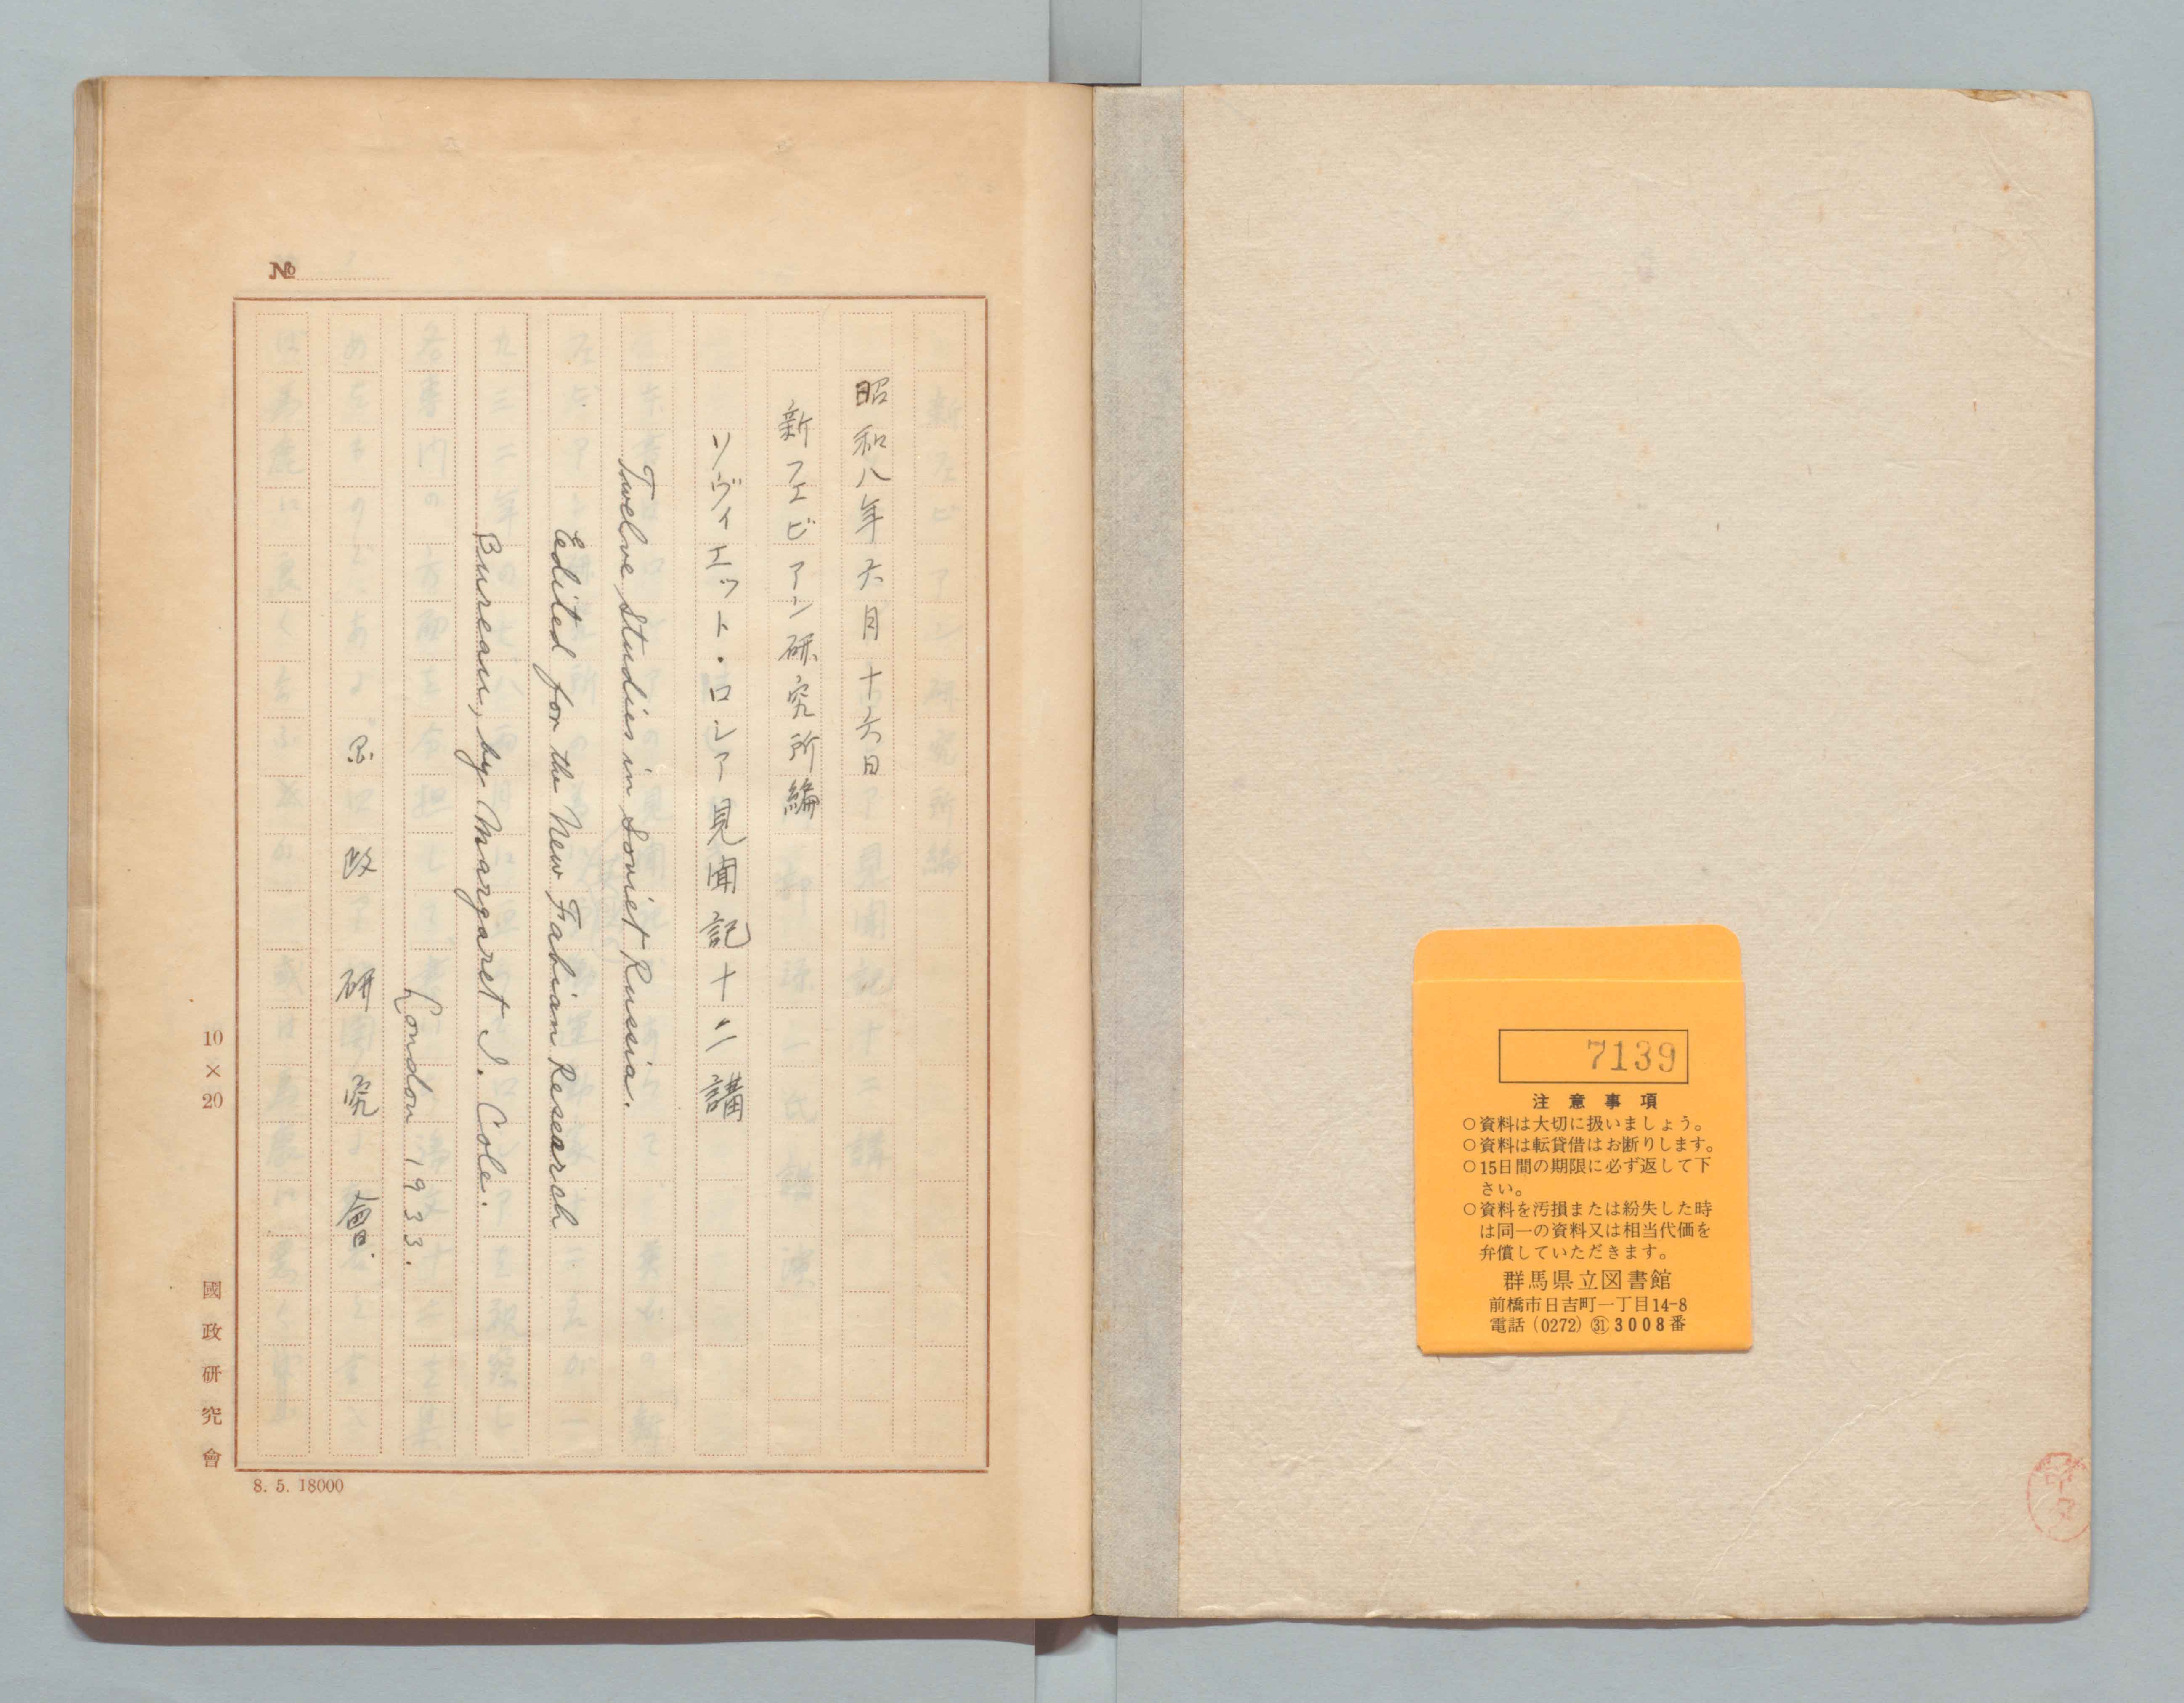 7139
注意事項
○資料は大切に扱いましょう。
○資料は転貸借はお断りします。
○15日間の期限に必ず返して下
さい。
○資料を汚損または紛失した時
は同一の資料又は相当代価を
弁償していただきます。
群馬県立図書館
前橋市日吉町一丁目14-8
電話（0272）㉛3008番
№
昭和八年六月十六日
新フェビアン研究所編
ソヴィエット・ロシア見聞記十二講
Twelve Studies in Soviet Russia.
Edited for the New Fabian Research
Bureau, by Margaret I. Cole.
London 1933.
国政研究會.
10×20
國政研究會
8. 5. 18000